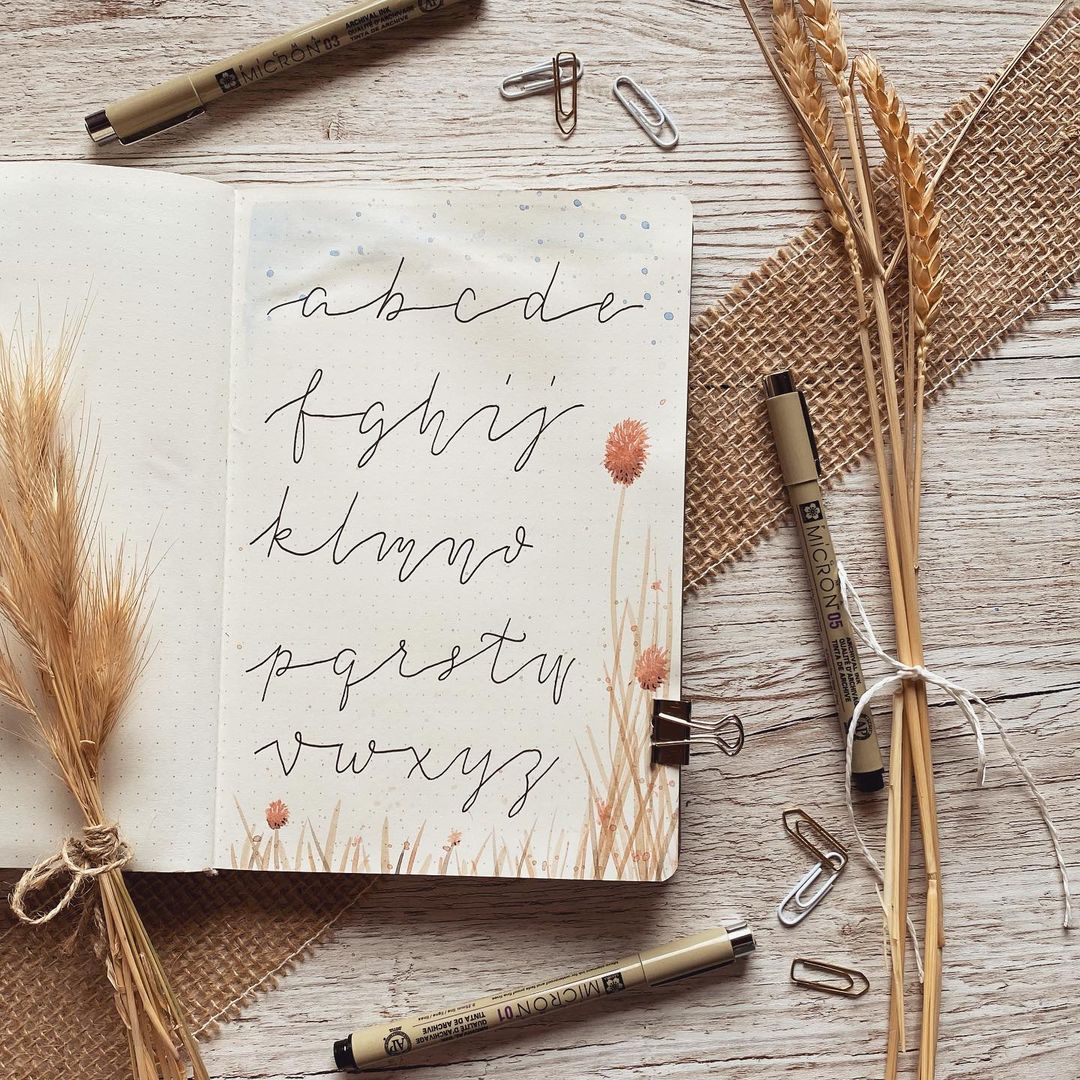 MICRON 03
ARCHIVAL INK
QUALITÉ D'ARCHIVAGE
TINTA DE ARCHIVE
AP
a b c d e
f g h i j
k l m n o
p q r s t u
v w x y z
MICRON 05
ARCHIVAL INK
QUALITÉ D'ARCHIVAGE
TINTA DE ARCHIVE
AP
MICRON 01
QUALITÉ D'ARCHIVAGE
TINTA DE ARCHIVE
AP